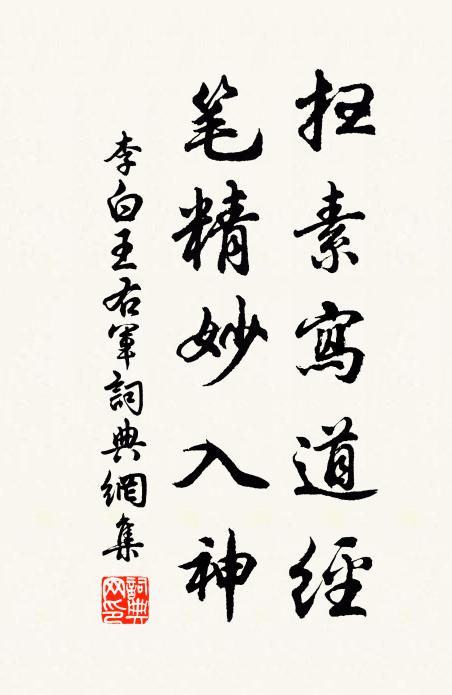 扫素寫道經
笔精妙入神
李白王右軍詞典網集
詞典
网印